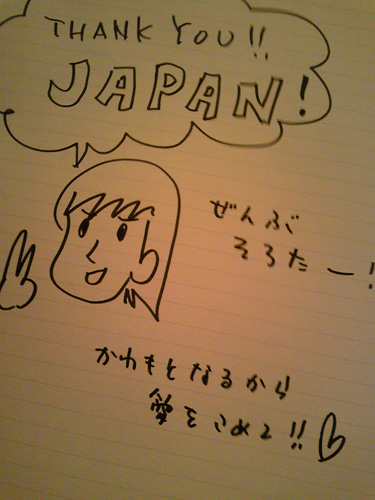 THANK YOU!!
JAPAN!
ぜんぶ
そろたー!
かわもとなるから
愛をこめて!!